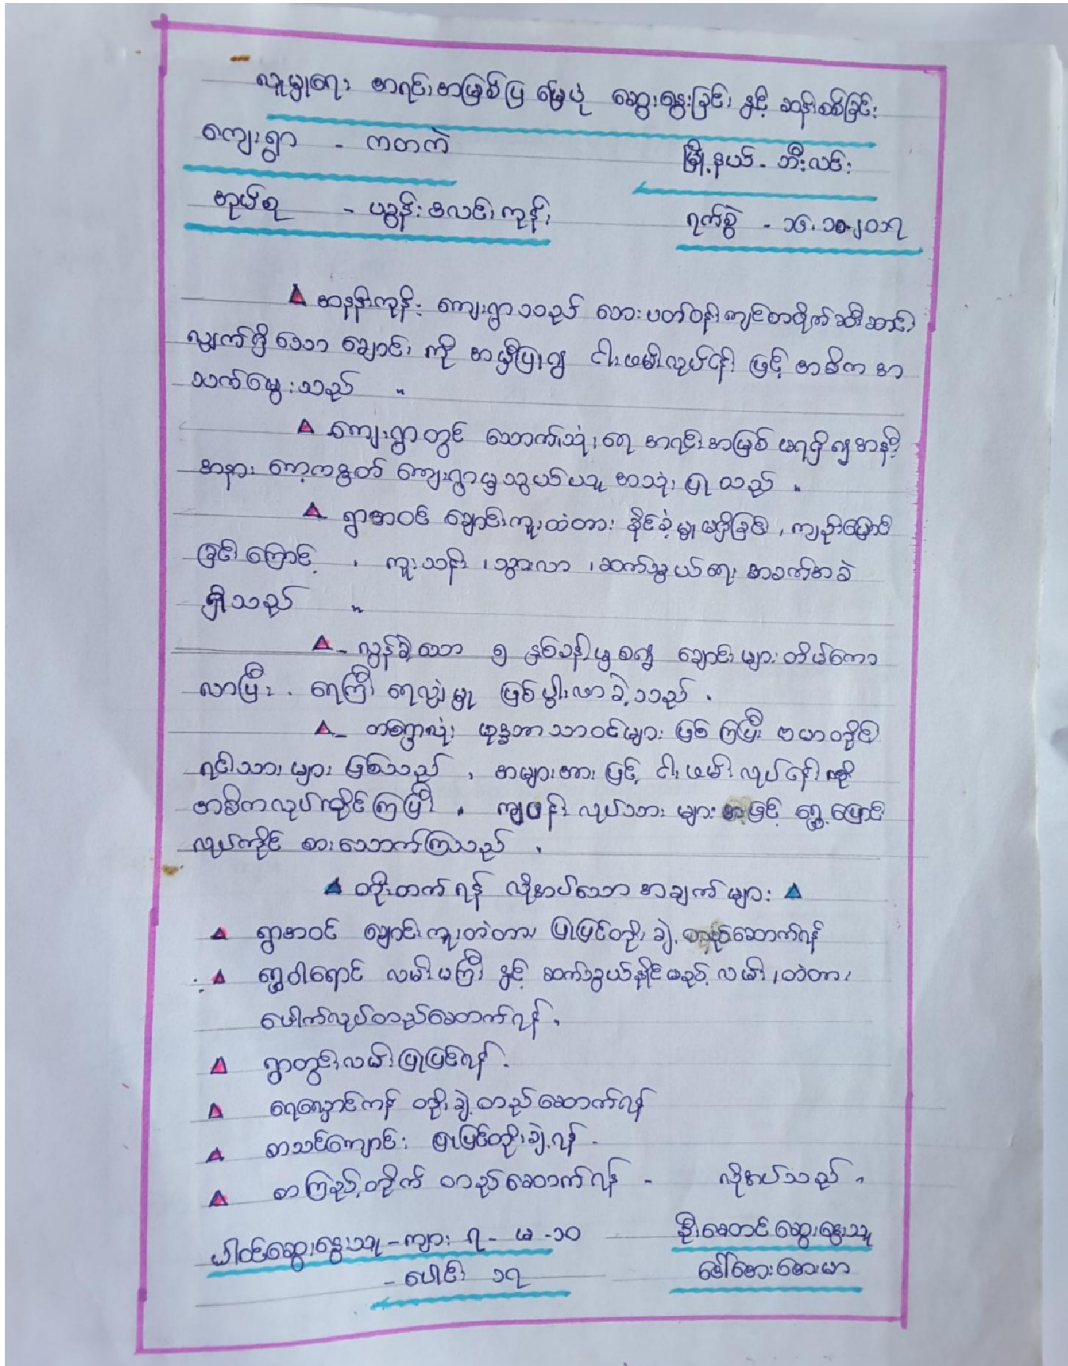 လူမှုရေး အရင်းအမြစ်ပြ မြေပုံ ဆွေးနွေးခြင်း နှင့် ဆန်းစစ်ခြင်း
ကျေးရွာ - ကတကဲ မြို့နယ် - ဘီးလင်း
အုပ်စု - ပခွန်းစလင်းကုန်း ရက်စွဲ - ၁၄.၁၀.၂၀၁၇
▲ ကျေးရွာသည် ဘေးပတ်ဝန်းကျင်တဝိုက်စီးဆင်း
လျှက်ရှိသော ချောင်း ကို အမှီပြု၍ ငါးဖမ်းလုပ်ငန်း ဖြင့် အဓိက အ
သက်မွေးသည် ။
▲ ကျေးရွာတွင် သောက်သုံးရေ အရင်းအမြစ် မရှိ၍ အနီး
အနား ကျေးရွာမှသွယ်ယူ အသုံးပြုသည် ။
▲ ရွာအဝင် ချောင်းကူးတံတား ခိုင်ခံ့မှု မရှိခြင်း ၊ ကျဉ်းမြောင်း
ခြင်းကြောင့် ၊ ကူးသန်း ၊ သွားလာ ၊ ဆက်သွယ်ရေး အခက်အခဲ
ရှိသည် ။
▲ - လွန်ခဲ့သော ၅ နှစ်ခန့်မှစ၍ ချောင်းများတိမ်ကော
လာပြီး ၊ ရေကြီး ရေလျှံမှု ဖြစ်ပွါးလာခဲ့သည် ။
▲ - တစ်ရွာလုံး ဗုဒ္ဓဘာသာဝင်များ ဖြစ်ကြပြီး ဗမာတိုင်း
ရင်းသားများ ဖြစ်သည် ၊ အများအား ဖြင့် ငါးဖမ်းလုပ်ငန်းကို
အဓိကလုပ်ကိုင်ကြပြီး ၊ ကျပန်းလုပ်သား များ အဖြင့် ရွှေ့ပြောင်း
လုပ်ကိုင် စားသောက်ကြသည် ။
▲ တိုးတက်ရန် လိုအပ်သော အချက်များ ▲
▲ ရွာအဝင် ချောင်းကူးတံတား ပြုပြင်တိုးချဲ့ တည်ဆောက်ရန်
▲ ရွှေဝါရောင် လမ်းမကြီး နှင့် ဆက်သွယ်နိုင်မည့် လမ်း ၊ တံတား
ဖေါက်လုပ်တည်ဆောက်ရန် ။
▲ ရွာတွင်းလမ်းပြုပြင်ရန် ။
▲ ရေလှောင်ကန် တိုးချဲ့တည်ဆောက်ရန်
▲ စာသင်ကျောင်း ပြုပြင်တိုးချဲ့ရန် ။
▲ စာကြည့်တိုက် တည်ဆောက်ရန် - လိုအပ်သည် ။
ပါဝင်ဆွေးနွေးသူ - ကျား ၇ - မ - ၁၀ ဦးဆောင်ဆွေးနွေးသူ
- ပေါင်း ၁၇ ဒေါ်အေးအေးမာ